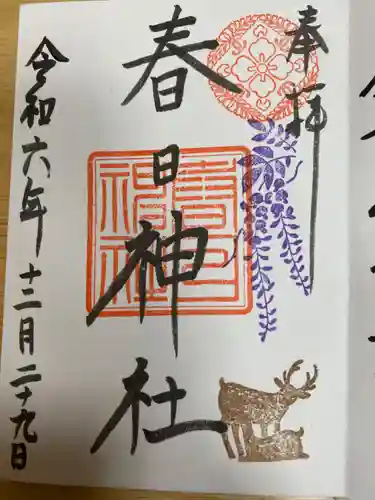 奉拝
春日神社
春日
神社
令和六年十二月二十九日